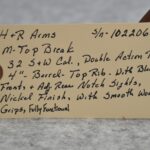 H&R Arms S/N- 102206
M-Top Break
32 S+W Cal., Double Action
4" Barrel- Top Rib. With Bl
Front + Adj. Rear Notch Sights,
Nickel Finish, With Smooth Wo
Grips, Fully Functional